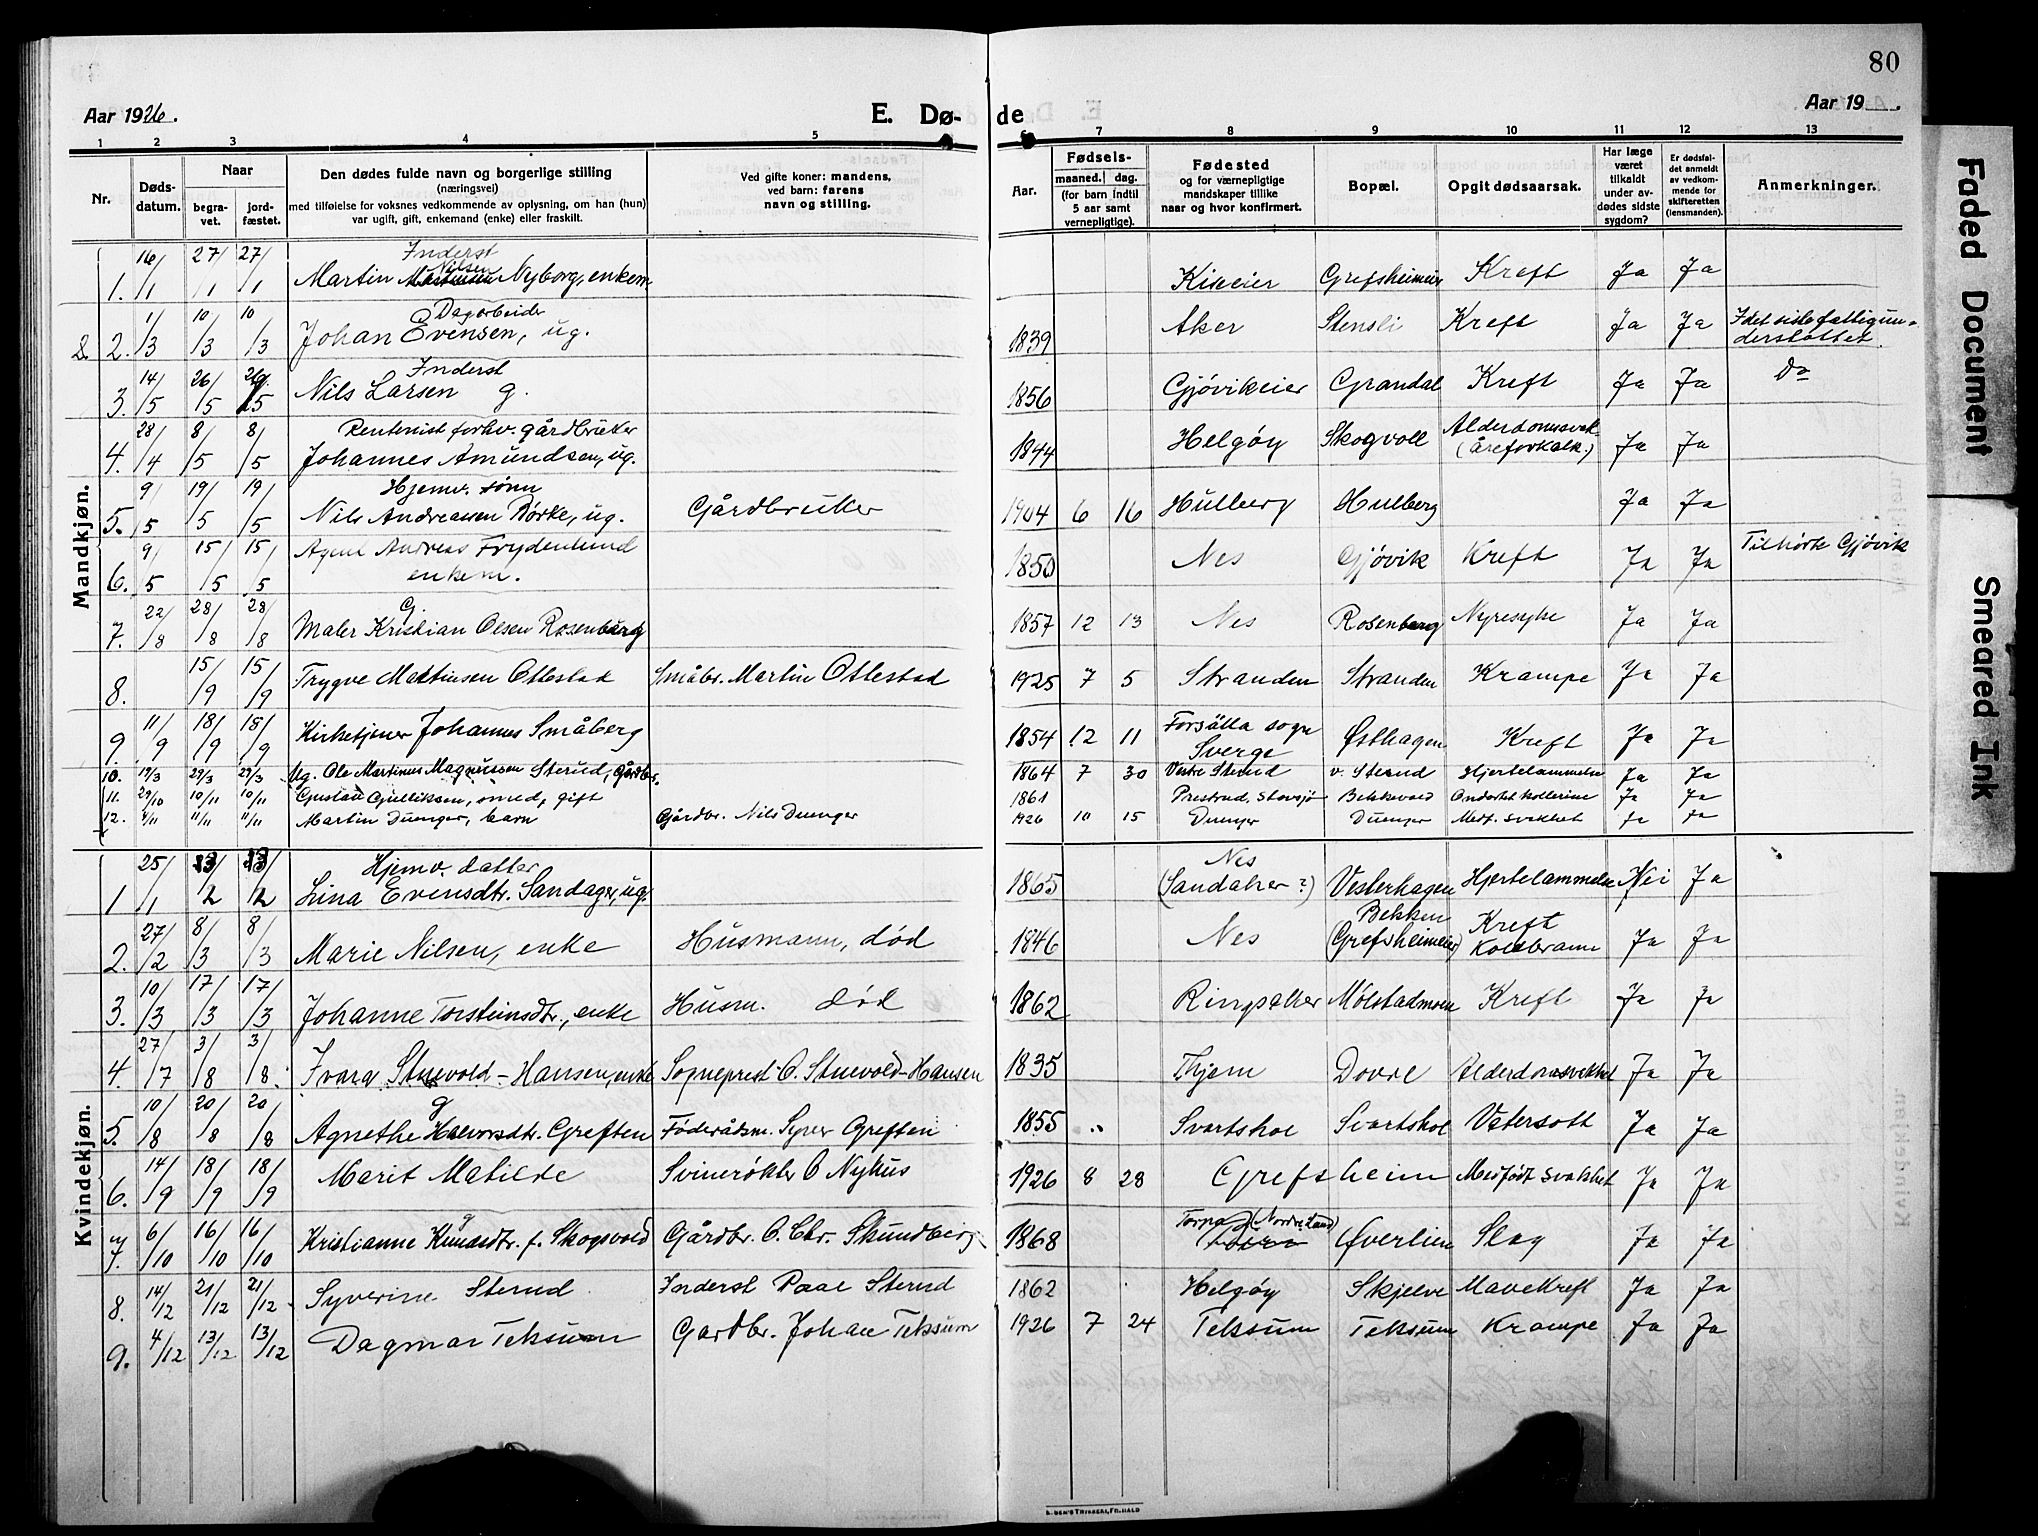 80
Aar 1926.
E. Dø-
de
Aar 19 .
1 2 3 4 5 6 7 8 9 10 11 12 13
Nr.
Døds-
datum.
Naar
begra-
vet.
jord-
fæstet.
Den dødes fulde navn og borgerlige stilling
(næringsvei)
med tilføielse for voksnes vedkommende av oplysning, om han (hun)
var ugift, gift, enkemand (enke) eller fraskilt.
Ved gifte koner: mandens,
ved barn: farens
navn og stilling.
Aar.
Fødsels-
maaned. dag.
(for barn indtil
5 aar samt
vernepligtige).
Fødested
og for værnepligtige
mandskaper tillike
naar og hvor konfirmert.
Bopæl.
Opgit dødsaarsak.
Har læge
været
tilkaldt
under av-
dødes sidste
sygdom?
Er dødsfal-
det anmeldt
av vedkom-
mende for
skifteretten
(lensmanden).
Anmerkninger.
Mandkjøn.
Inderst
1. 16/1 27/1 27/1 Martin Nilsen Nyborg, enkem. Kiseeier Grefsheimeier Kreft Ja Ja
Dagarbeider
8. 2. 1/3 10/3 10/3 Johan Evensen, ug. 1839 Aker Stensli Kreft Ja Ja I det siste fattigun-
derstøttet.
Inderst
3. 14/5 26/5 26/5 Nils Larsen g. 1856 Gjøvikeier Grandal Kreft Ja Ja Do
Rentenist forhv. gårdbruker
4. 28/4 8/5 8/5 Johannes Amundsen, ug. 1844 Helgøy Skogvoll Alderdomssvak.
(åreforkalk.) Ja Ja
Hjemv. sønn
5. 9/5 19/5 19/5 Nils Andreassen Rørke, ug. Gårdbruker 1904 6 16 Hulberg Hulberg Ja Ja
6. 9/5 15/5 15/5 Agent Andreas Frydenlund
enkem. 1850 Nes Gjøvik Kreft Ja Ja Tilhørte Gjøvik
G.
7. 22/8 28/8 28/8 Maler Kristian Olsen Rosenberg 1857 12 13 Nes Rosenberg Nyresyke Ja Ja
8. 15/9 15/9 Trygve Martinsen Ottestad Småbr. Martin Ottestad 1925 7 5 Stranden Stranden Krampe Ja Ja
9. 11/9 18/9 18/9 Kirketjener Johannes Småberg 1854 12 11 Forsälla sogn
Sverge Østhagen Kreft Ja Ja
10. 19/3 29/3 29/3 Ug. Ole Martinus Magnussen Sterud, Gårdbr. 1864 7 30 Vestre Sterud v. Sterud Hjertelammelse Ja Ja
11. 29/10 10/11 10/11 Gustav Gulliksen, smed, gift 1861 Prestrud, Stavsjø Bekkevold Ondartet kollerine Ja Ja
12. 4/11 11/11 11/11 Martin Duenger, barn Gårdbr. Nils Duenger 1926 10 15 Duenger Duenger Medf. svakhet Ja Ja
Kvindekjøn.
Hjemv. datter
1 25/1 /2 /2 Lina Evensdtr. Sandager, ug. 1865 Nes
(Sandaker?) Vesterhagen Hjertelammelse Nei Ja
2. 27/2 8/3 8/3 Marie Nilsen, enke Husmann, død 1846 Nes Bekken
(Grefsheimeier) Kreft
Koldbrann Ja Ja
3. 10/3 17/3 17/3 Johanne Torsteinsdtr., enke Husm. død 1862 Ringsaker Mølstadmoen Kreft Ja Ja
4. 27/7 3/8 3/8 Ivara Stuevold-Hansen, enke Sogneprest O. Stuevold-Hansen 1835 Thjem Dovre Alderdomssvakhet Ja Ja
g
5. 10/8 20/8 20/8 Agnethe Halvorsdtr. Greften Føderådsm. Syver Greften 1855 " Svartskol Svartskol Vatersott Ja Ja
6. 14/9 18/9 18/9 Marit Matilde Svinerøkter O Nyhus 1926 8 28 Grefsheim Medfødt svakhet Ja Ja
g
7. 6/10 16/10 16/10 Kristianne Knuasdtr. f. Skogsvold Gårdbr. O. Chr. Skundberg 1868 Torpa (Nordre Land) Øverlien Slag Ja Ja
8. 14/12 21/12 21/12 Syverine Sterud Inderst Paal Sterud 1862 Helgøy Skjelve Mavekreft Ja Ja
9. 4/12 13/12 13/12 Dagmar Teksum Gardbr. Johan Teksum 1926 7 24 Teksum Teksum Krampe Ja Ja
Faded Document
Smeared Ink